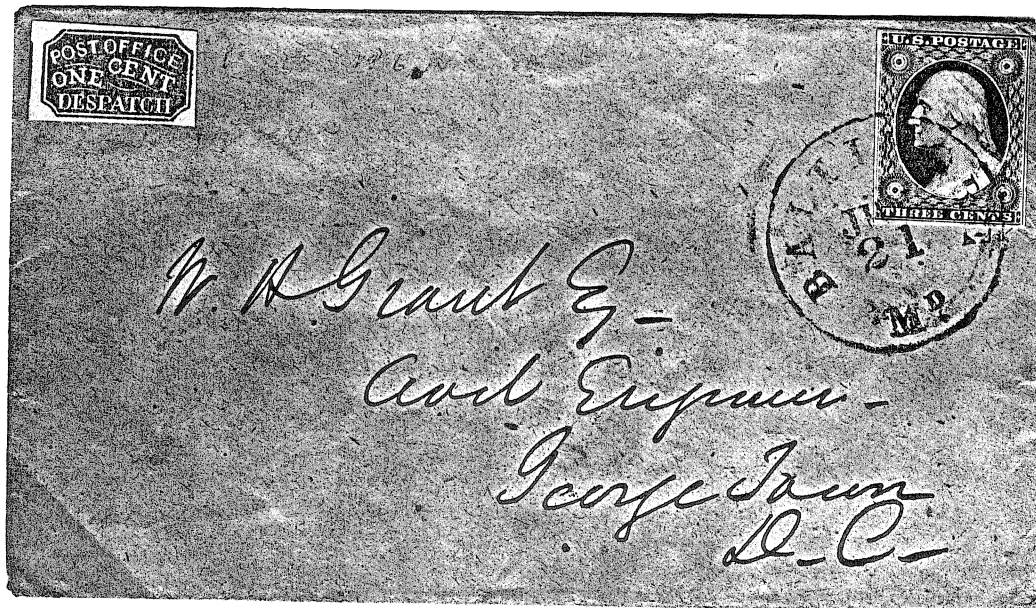 POST OFFICE
ONE CENT
DESPATCH
U.S. POSTAGE
THREE CENTS
21
Md
W. H Grant Esq -
Civil Engineer -
George Town
D. C -